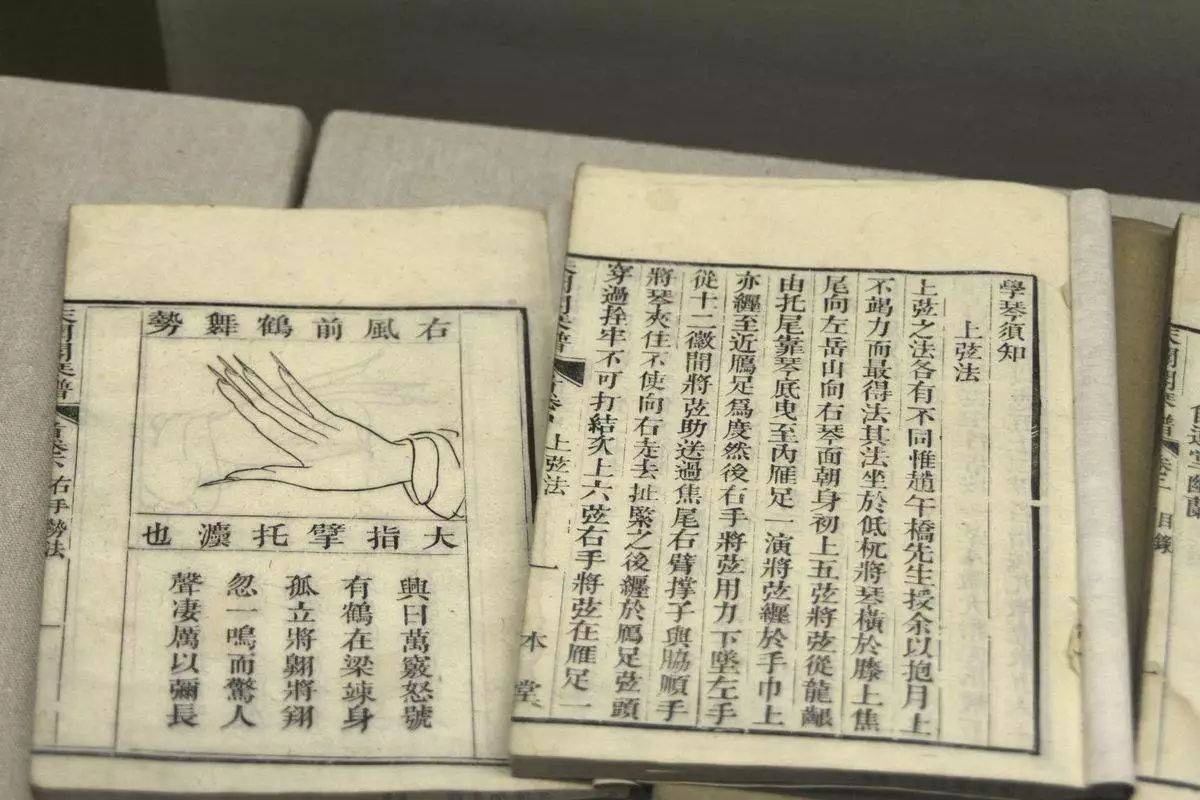 目錄
學琴須知
上弦法
上弦之法各有不同惟趙午橋先生授余以抱月上
不竭力而最得法其法坐於低杌將琴橫於膝上焦
尾向左岳山向右琴面朝身初上五弦將弦從龍齦
由托尾靠琴底曳至內雁足一演將弦纏於手巾上
亦纏至近鴈足爲度然後右手將弦用力下墜左手
從十二徽間將弦助送過焦尾右臂撑子與脇順手
將琴夾住不使向右走去扯緊之後纏於鴈足弦頭
穿過拴牢不可打結次上六弦右手將弦在雁足一
上弦法 一 本堂
右風前鶴舞勢
大指擘托也
興曰萬竅怒號
有鶴在梁竦身
孤立將翺將翔
忽一鳴而驚人
聲凄厲以彌長
右手勢法